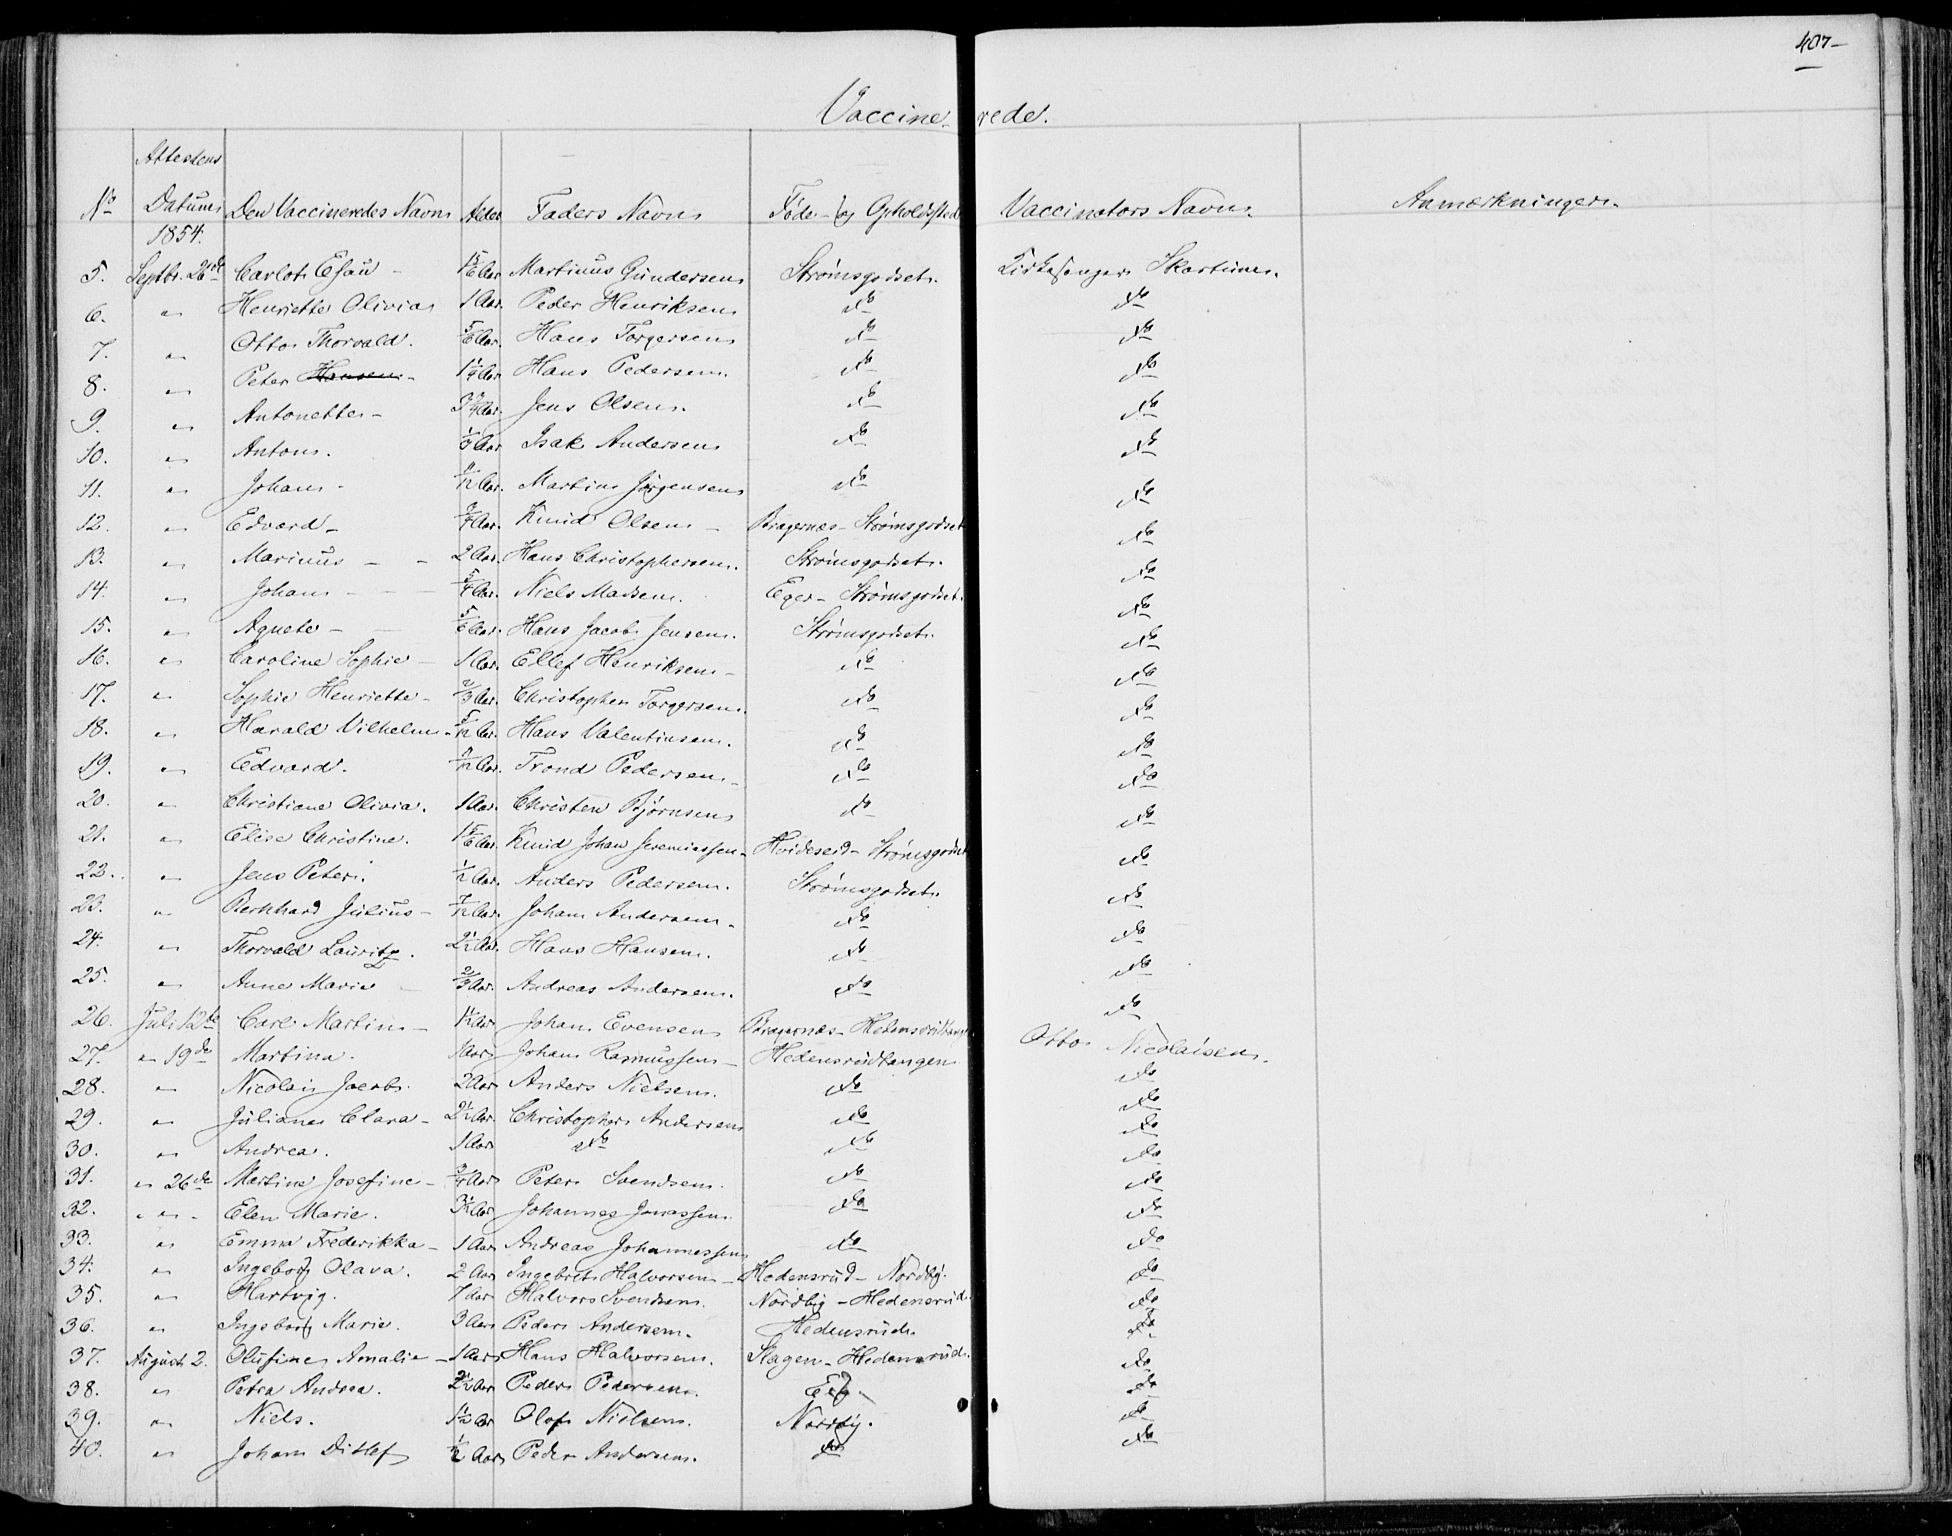 407-
Vaccinerede.
No Attestens Datum Den Vaccineredes Navn Alder Faders Navn Føde- og Opholdssted Vaccinators Navn. Anmærkninger.
1854.
5. Septbr. 26de Carlot Esau - 1 5/6 Aar Martinus Gundersen Strømsgodset. Kirkesanger Skartum.
6. " Henriette Olivia 1 Aar. Peder Henriksen do do
7. " Otto Thorvald. 5/6 Aar. Hans Torgersen do do
8. " Peter Hansen - 1 1/4 Aar Hans Pedersen. do do
9. " Antonette - Aar. Jens Olsen. do do
10. " Anton. Aar Isak Andersen do do
11. " Johan - 11/12 Aar. Martin Jørgensen do do
12. " Edvard - 3/4 Aar. Knud Olsen - Bragernæs - Strømsgodset do
13. " Marinus - - 2 Aar. Hans Christophersen. Strømsgodset. do
14. " Johan - - - Aar. Niels Madsen. Eger - Strømsgodset. do
15. " Agnete - 5/6 Aar. Hans Jacob Jensen. Strømsgodset. do
16. " Caroline Sophie - 1 Aar. Ellef Henriksen - do do
17. " Sophie Henriette - 2/3 Aar. Christopher Torgersen. do do
18. " Harald Vilhelm - 5/12 Aar. Hans Valentinsen. do do
19. " Edvard. 7/12 Aar. Trond Pedersen - do do
20. " Christiane Olivia. 1 Aar. Christen Bjørnsen do do
21. " Elise Christine. 1 5/6 Aar. Knud Johan Jeremiassen - Hvideseid - Strømsgodset do
22. " Jens Peter. 1/2 Aar. Anders Pedersen. Strømsgodset. do
23. " Bernhard Julius - 7/12 Aar. Johan Andersen - do do
24. " Thorvald Lauritz. 2 1/2 Aar. Hans Hansen. do do
25. " Anne Marie - 2/3 Aar. Andreas Andersen. do do
26. Juli 12te Carl Martin - 1 1/2 Aar Johan Evensen Bragernæs - Hedensrudtangen do
27. " 19de Martina. 1 Aar Johan Rasmussen - Hedensrudtangen Otto Nicolaisen.
28. " Nicolai Jacob. 2 Aar Anders Nielsen. do do
29. " Juliane Clara - 2 1/2 Aar. Christopher Andersen do do
30. " Andrea. 1 Aar do do do
31. " 26de Martine Josefine - 3/4 Aar Peter Svendsen. do do
32. " Elen Marie. 3 1/2 Aar Johannes Jonassen. do do
33. " Emma Frederikka - 1 Aar Andreas Johannessen do do
34. " Ingeborg Olava. 2 Aar Ingebret Halvorsen - Hedensrud - Nordby. do
35. " Hartvig. 1 Aar Halvor Svendsen. Nordby - Hedensrud. do
36. " Ingeborg Marie. 3 Aar Peder Andersen. Hedensrud. do
37. August 2. Olufine Amalie - 1 Aar Hans Halvorsen. Stagen - Hedensrud. do
38. " Petra Andrea. 2 1/2 Aar Peder Pedersen. do
39. " Niels. 1 1/2 Aar Olof Nielsen. Nordby. do
40. " Johan Ditlef 1/2 Aar Peder Andersen. do do